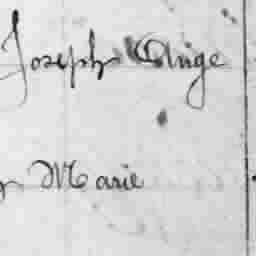 Joseph Ange
Marie